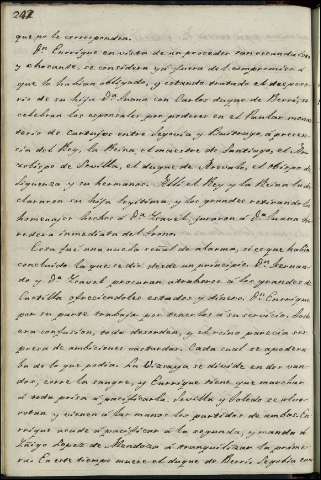 242
que no le corresponden.
Dn. Enrique en vista de un proceder tan escandaloso
y chocante, se considera ya fuera del compromiso á
que le habian obligado, y estando tratado el desposo-
rio de su hija Da. Juana con Carlos duque de Berri, se
celebran los esponsales por poderes en el Paular monas-
terio de cartujos entre Segovia, y Buitrago, á presen-
cia del Rey, la Reina, el maestre de Santiago, el Ar-
zobispo de Sevilla, el duque de Arevalo, el obispo de
Siguenza y su hermano. Allí el Rey y la Reina de-
clararon su hija legitima, y los grandes retirando el
homenaje hecho á Da. Isavel, juraron á Da. Juana he-
redera inmediata del trono.
Esta fué una nueba señal de alarma, si es que habia
concluido la que se dió desde un principio. Dn. Fernan-
do y Da. Isavel procuran atraherse á los grandes de
Castilla ofreciendoles estados y dinero. Dn. Enrique
por su parte trabaja por tenerlos á su servicio. Todo
era confusion, todo desorden, y el reino parecia ser
presa de ambiciones encontradas. Cada cual se apodera-
ba de lo que podia. La Vizcaya se divide en dos van-
dos, corre la sangre, y Enrique tiene que marchar
á toda prisa á pacificarla. Sevilla y Toledo se albo-
rotan y vienen á las manos los partidos de ambos. En-
rique acude á pacificar á la segunda, y manda á
Iñigo Lopez de Mendoza á tranquilizar la prime-
ra. En este tiempo muere el duque de Berri, Segovia con